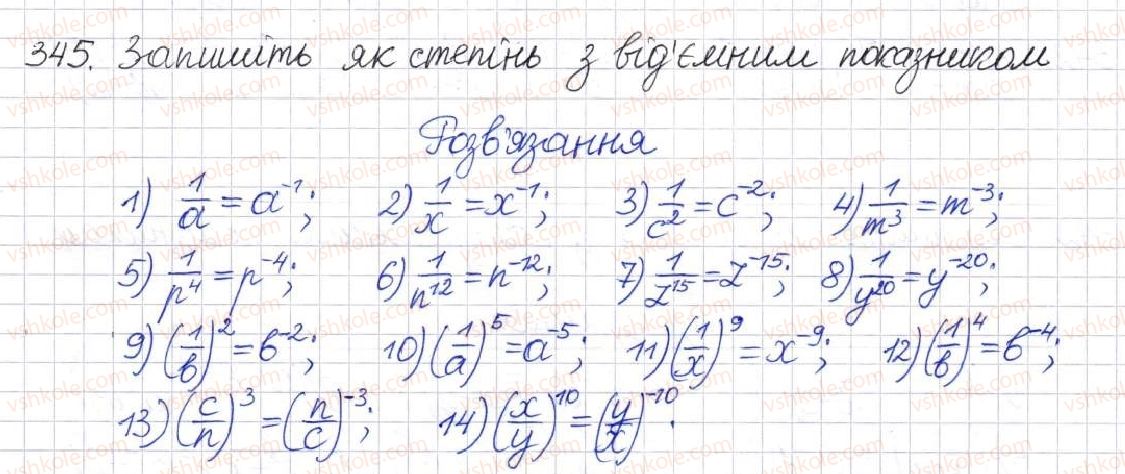 345. Запишіть як степінь з від'ємним показником
Розв'язання
1) 1/a = a⁻¹; 2) 1/x = x⁻¹; 3) 1/c² = c⁻²; 4) 1/m³ = m⁻³;
5) 1/p⁴ = p⁻⁴; 6) 1/n¹² = n⁻¹²; 7) 1/z¹⁵ = z⁻¹⁵; 8) 1/y²⁰ = y⁻²⁰;
9) (1/b)² = b⁻²; 10) (1/a)⁵ = a⁻⁵; 11) (1/x)⁹ = x⁻⁹; 12) (1/b)⁴ = b⁻⁴;
13) (c/n)³ = (n/c)⁻³; 14) (x/y)¹⁰ = (y/x)⁻¹⁰.